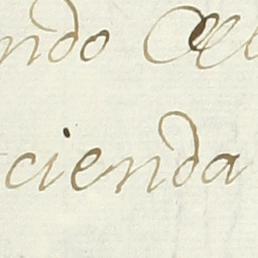 ndo
cienda